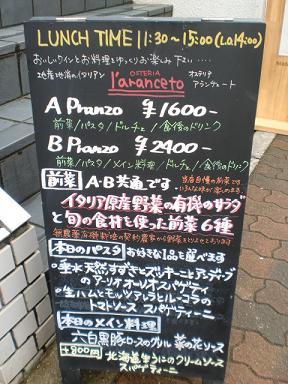 LUNCH TIME 11:30~15:00 (L.o.14:00)
おいしいワインとお料理をゆっくりお楽しみ下さい....
地産地消のイタリアン
OSTERIA
l'aranceto
オステリア
アランチェート
A Pranzo ¥1600-
前菜/パスタ/ドルチェ/食後のドリンク
B Pranzo ¥2400-
前菜/パスタ/メイン料理/ドルチェ/食後のドリンク
前菜 A・B共通です
当店自慢の前菜で
いろんな味が楽しめます
イタリア原産野菜の有機のサラダ
と旬の食材を使った前菜6種
無農薬有機栽培の契約農家から野菜をとりよせております
本日のパスタ お好きな1品を選べます
・垂水天然すずきとズッキーニとアンディーブの
アーリオオーリオスパゲティ
・生ハムとモッツァレラとルーコラの
トマトソース スパゲティーニ
本日のメイン料理
・六白黒豚ロースのグリル 菜の花ソース
+800円 北海道生うにのクリームソース
スパゲティーニ